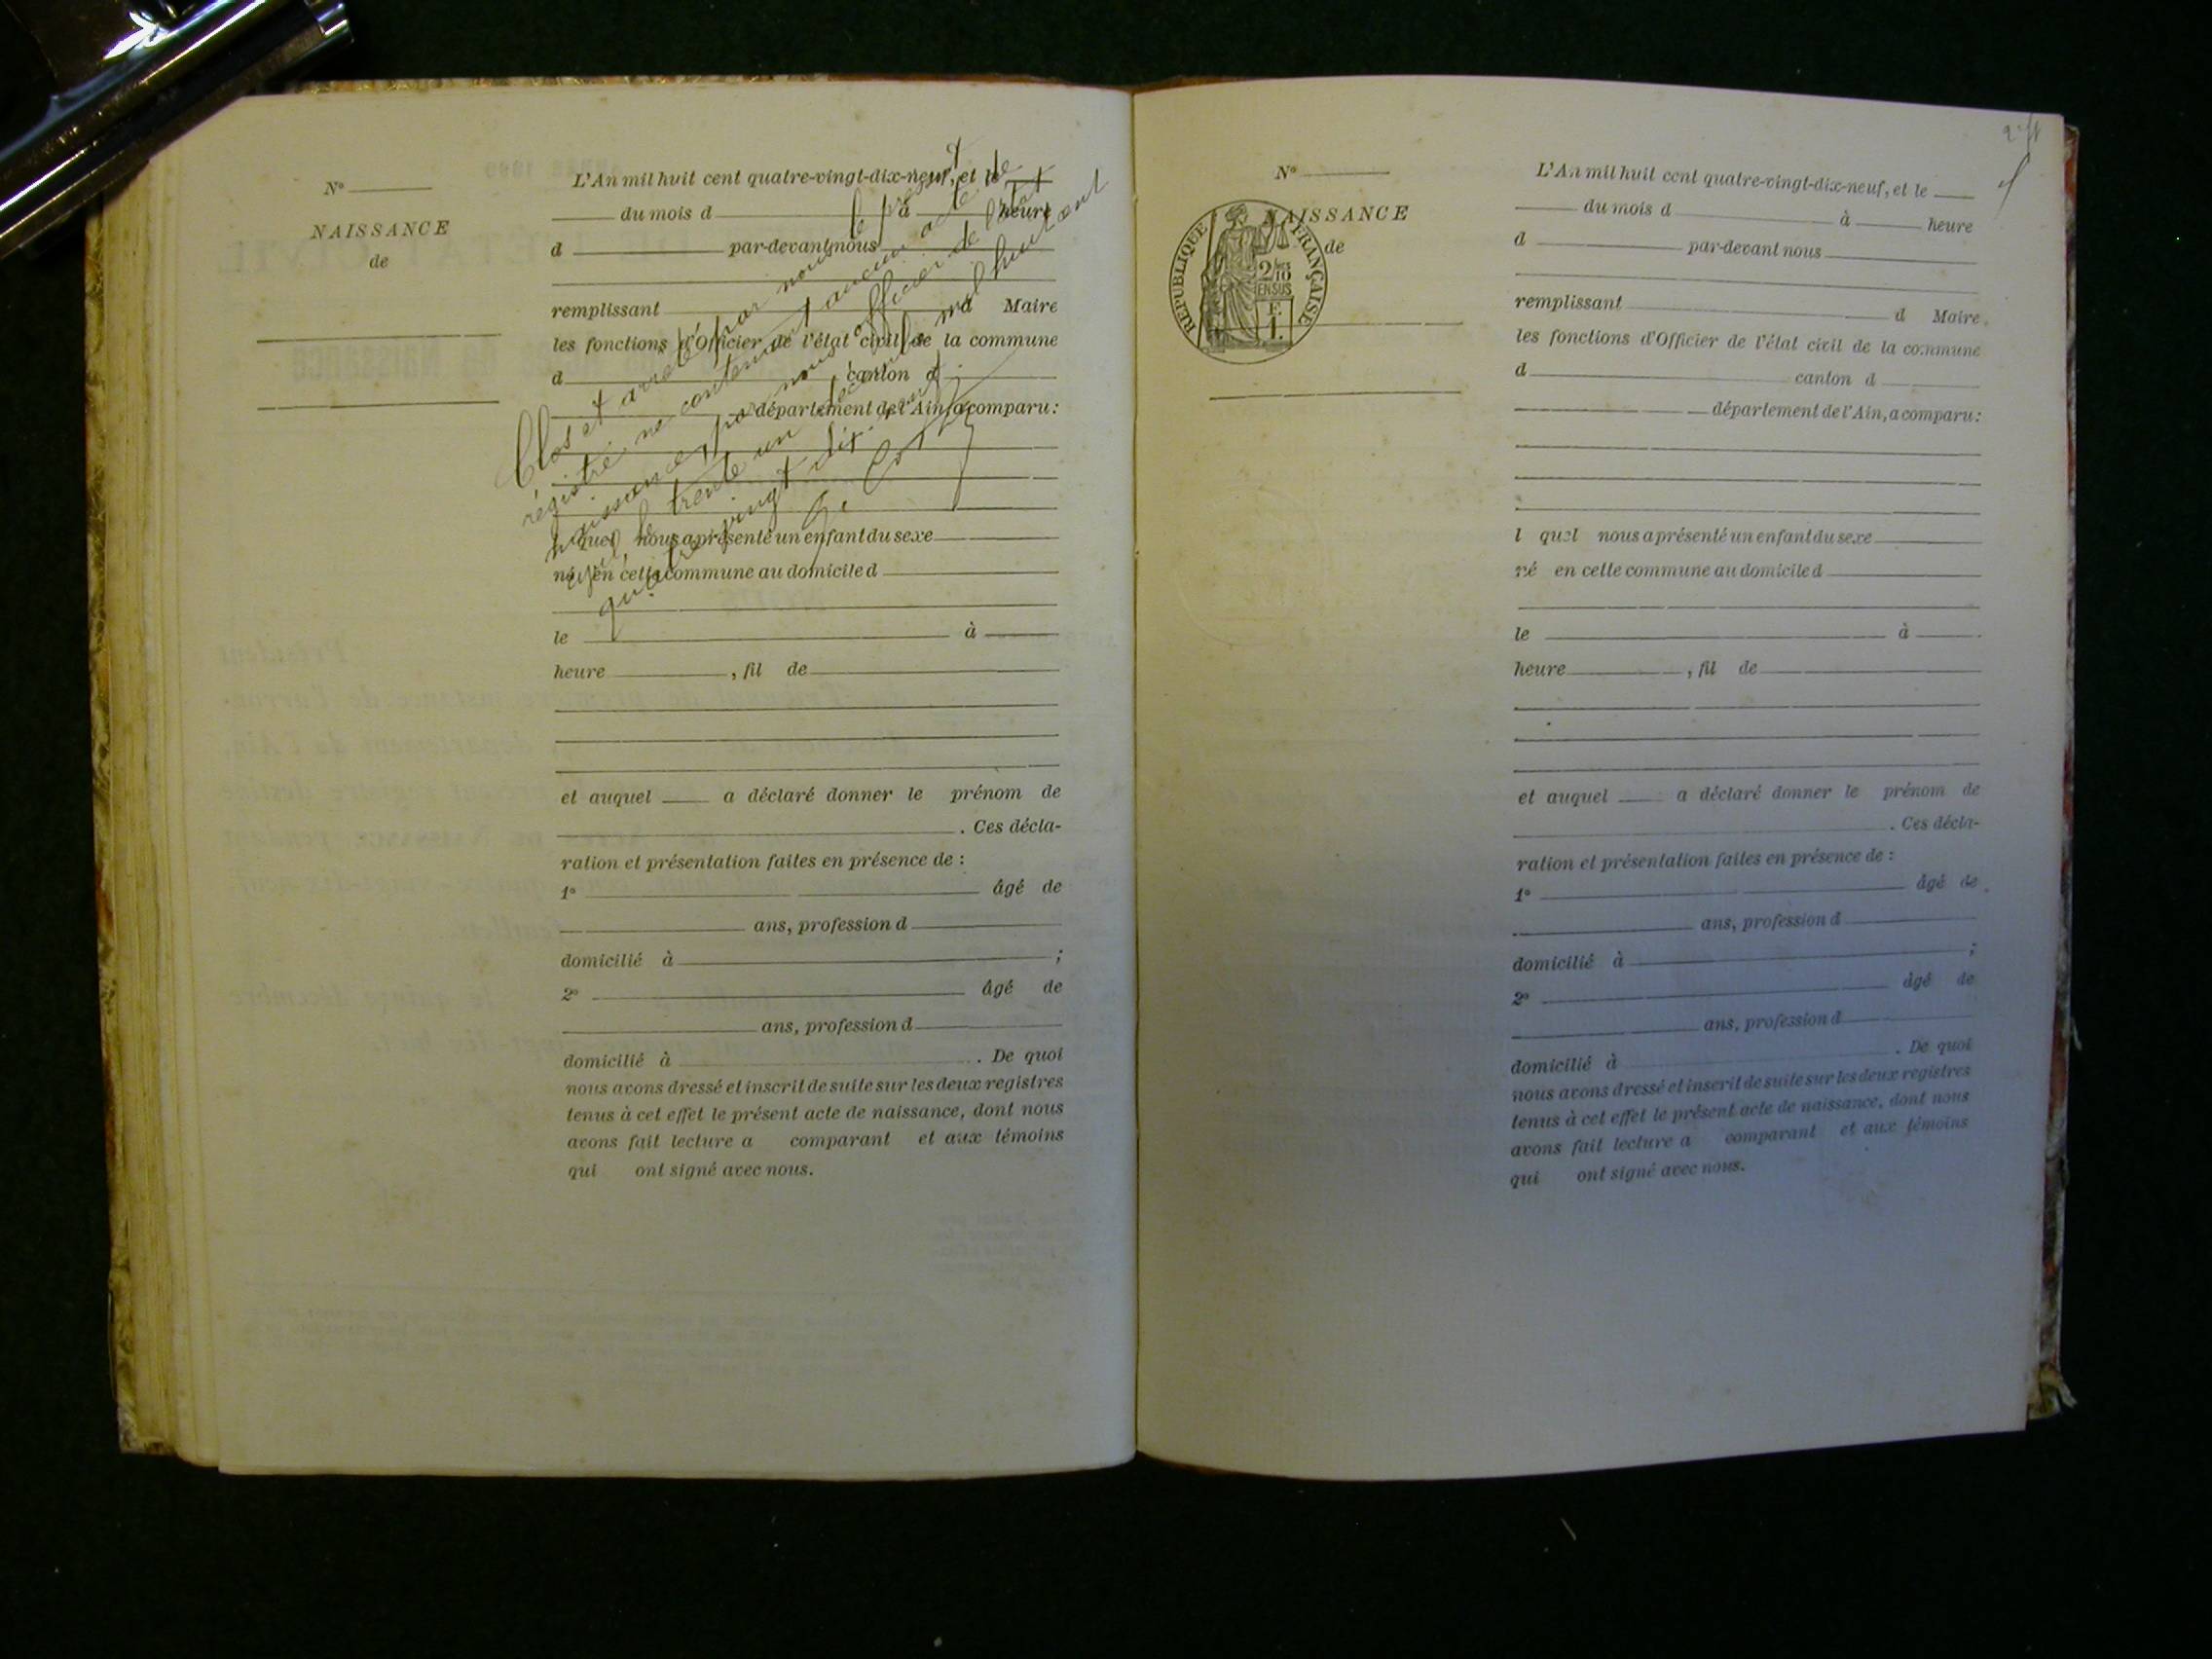 N°
NAISSANCE
de
L'An mil huit cent quatre-vingt-dix-neuf, et le
du mois d à heure
d par-devant nous
remplissant d Maire
les fonctions d'Officier de l'état civil de la commune
d canton d
département de l'Ain, a comparu:
l quel nous a présenté un enfant du sexe
né en cette commune au domicile d
le à
heure , fil de
et auquel a déclaré donner le prénom de
. Ces décla-
ration et présentation faites en présence de :
1° âgé de
ans, profession d
domicilié à ;
2° âgé de
ans, profession d
domicilié à . De quoi
nous avons dressé et inscrit de suite sur les deux registres
tenus à cet effet le présent acte de naissance, dont nous
avons fait lecture a comparant et aux témoins
qui ont signé avec nous.
Clos et arrêté par nous le présent
régistre ne contenant aucun acte de
naissance, par nous officier de l'état
civil, le trente un décembre mil huit cent
quatre vingt dix neuf
N°
NAISSANCE
de
RÉPUBLIQUE FRANÇAISE
2/10
EN SUS
1 F.
L'An mil huit cent quatre-vingt-dix-neuf, et le
du mois d à heure
d par-devant nous
remplissant d Maire
les fonctions d'Officier de l'état civil de la commune
d canton d
département de l'Ain, a comparu:
l quel nous a présenté un enfant du sexe
né en cette commune au domicile d
le à
heure , fil de
et auquel a déclaré donner le prénom de
. Ces décla-
ration et présentation faites en présence de :
1° âgé de
ans, profession d
domicilié à ;
2° âgé de
ans, profession d
domicilié à . De quoi
nous avons dressé et inscrit de suite sur les deux registres
tenus à cet effet le présent acte de naissance, dont nous
avons fait lecture a comparant et aux témoins
qui ont signé avec nous.